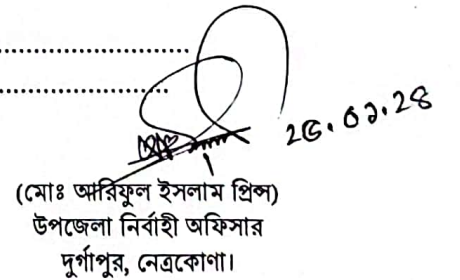 ২৫.০১.২৪
(মোঃ আরিফুল ইসলাম প্রিন্স)
উপজেলা নির্বাহী অফিসার
দুর্গাপুর, নেত্রকোণা।